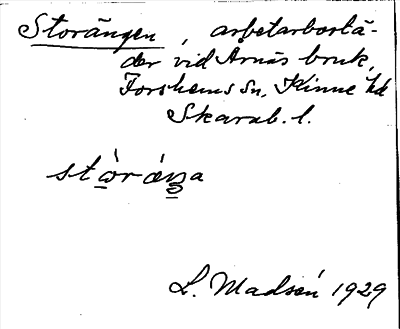 Storängen, arbetarbostä-
der vid Årnäs bruk,
Forshems sn, Kinne hd
Skarab. l.
L. Madsén 1929